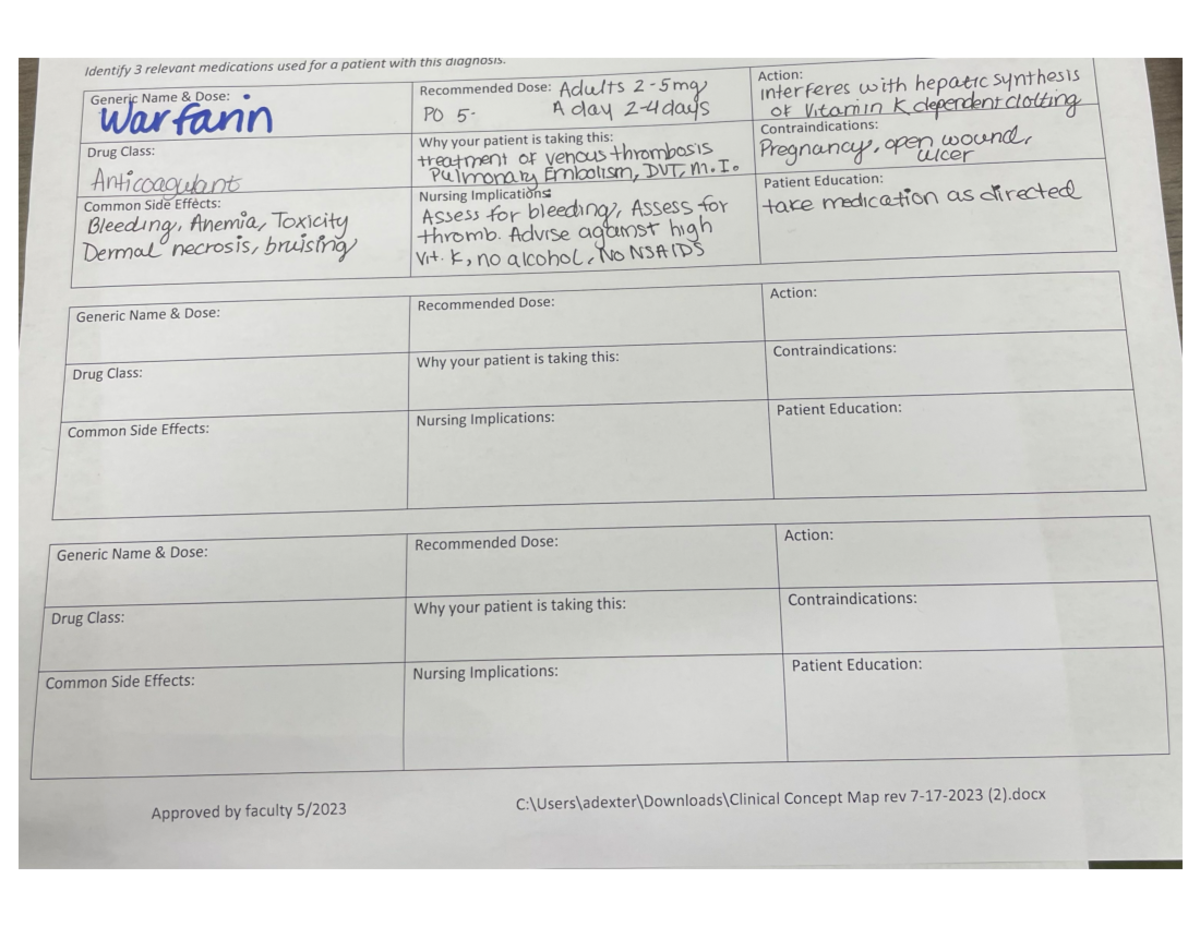 Identify 3 relevant medications used for a patient with this diagnosis.
Generic Name & Dose:
Warfarin
Recommended Dose: Adults 2-5mg
PO 5- A day 2-4 days
Action:
interferes with hepatic synthesis
of Vitamin K dependent clotting
Drug Class:
Anticoagulant
Why your patient is taking this:
treatment of venous thrombosis
Pulmonary Embolism, DVT, M.I.
Contraindications:
Pregnancy, open wound,
ulcer
Common Side Effects:
Bleeding, Anemia, Toxicity
Dermal necrosis, bruising
Nursing Implications:
Assess for bleeding, Assess for
thromb. Advise against high
Vit. K, no alcohol, No NSAIDS
Patient Education:
take medication as directed
Generic Name & Dose:
Recommended Dose:
Action:
Drug Class:
Why your patient is taking this:
Contraindications:
Common Side Effects:
Nursing Implications:
Patient Education:
Generic Name & Dose:
Recommended Dose:
Action:
Drug Class:
Why your patient is taking this:
Contraindications:
Common Side Effects:
Nursing Implications:
Patient Education:
Approved by faculty 5/2023
C:\Users\adexter\Downloads\Clinical Concept Map rev 7-17-2023 (2).docx